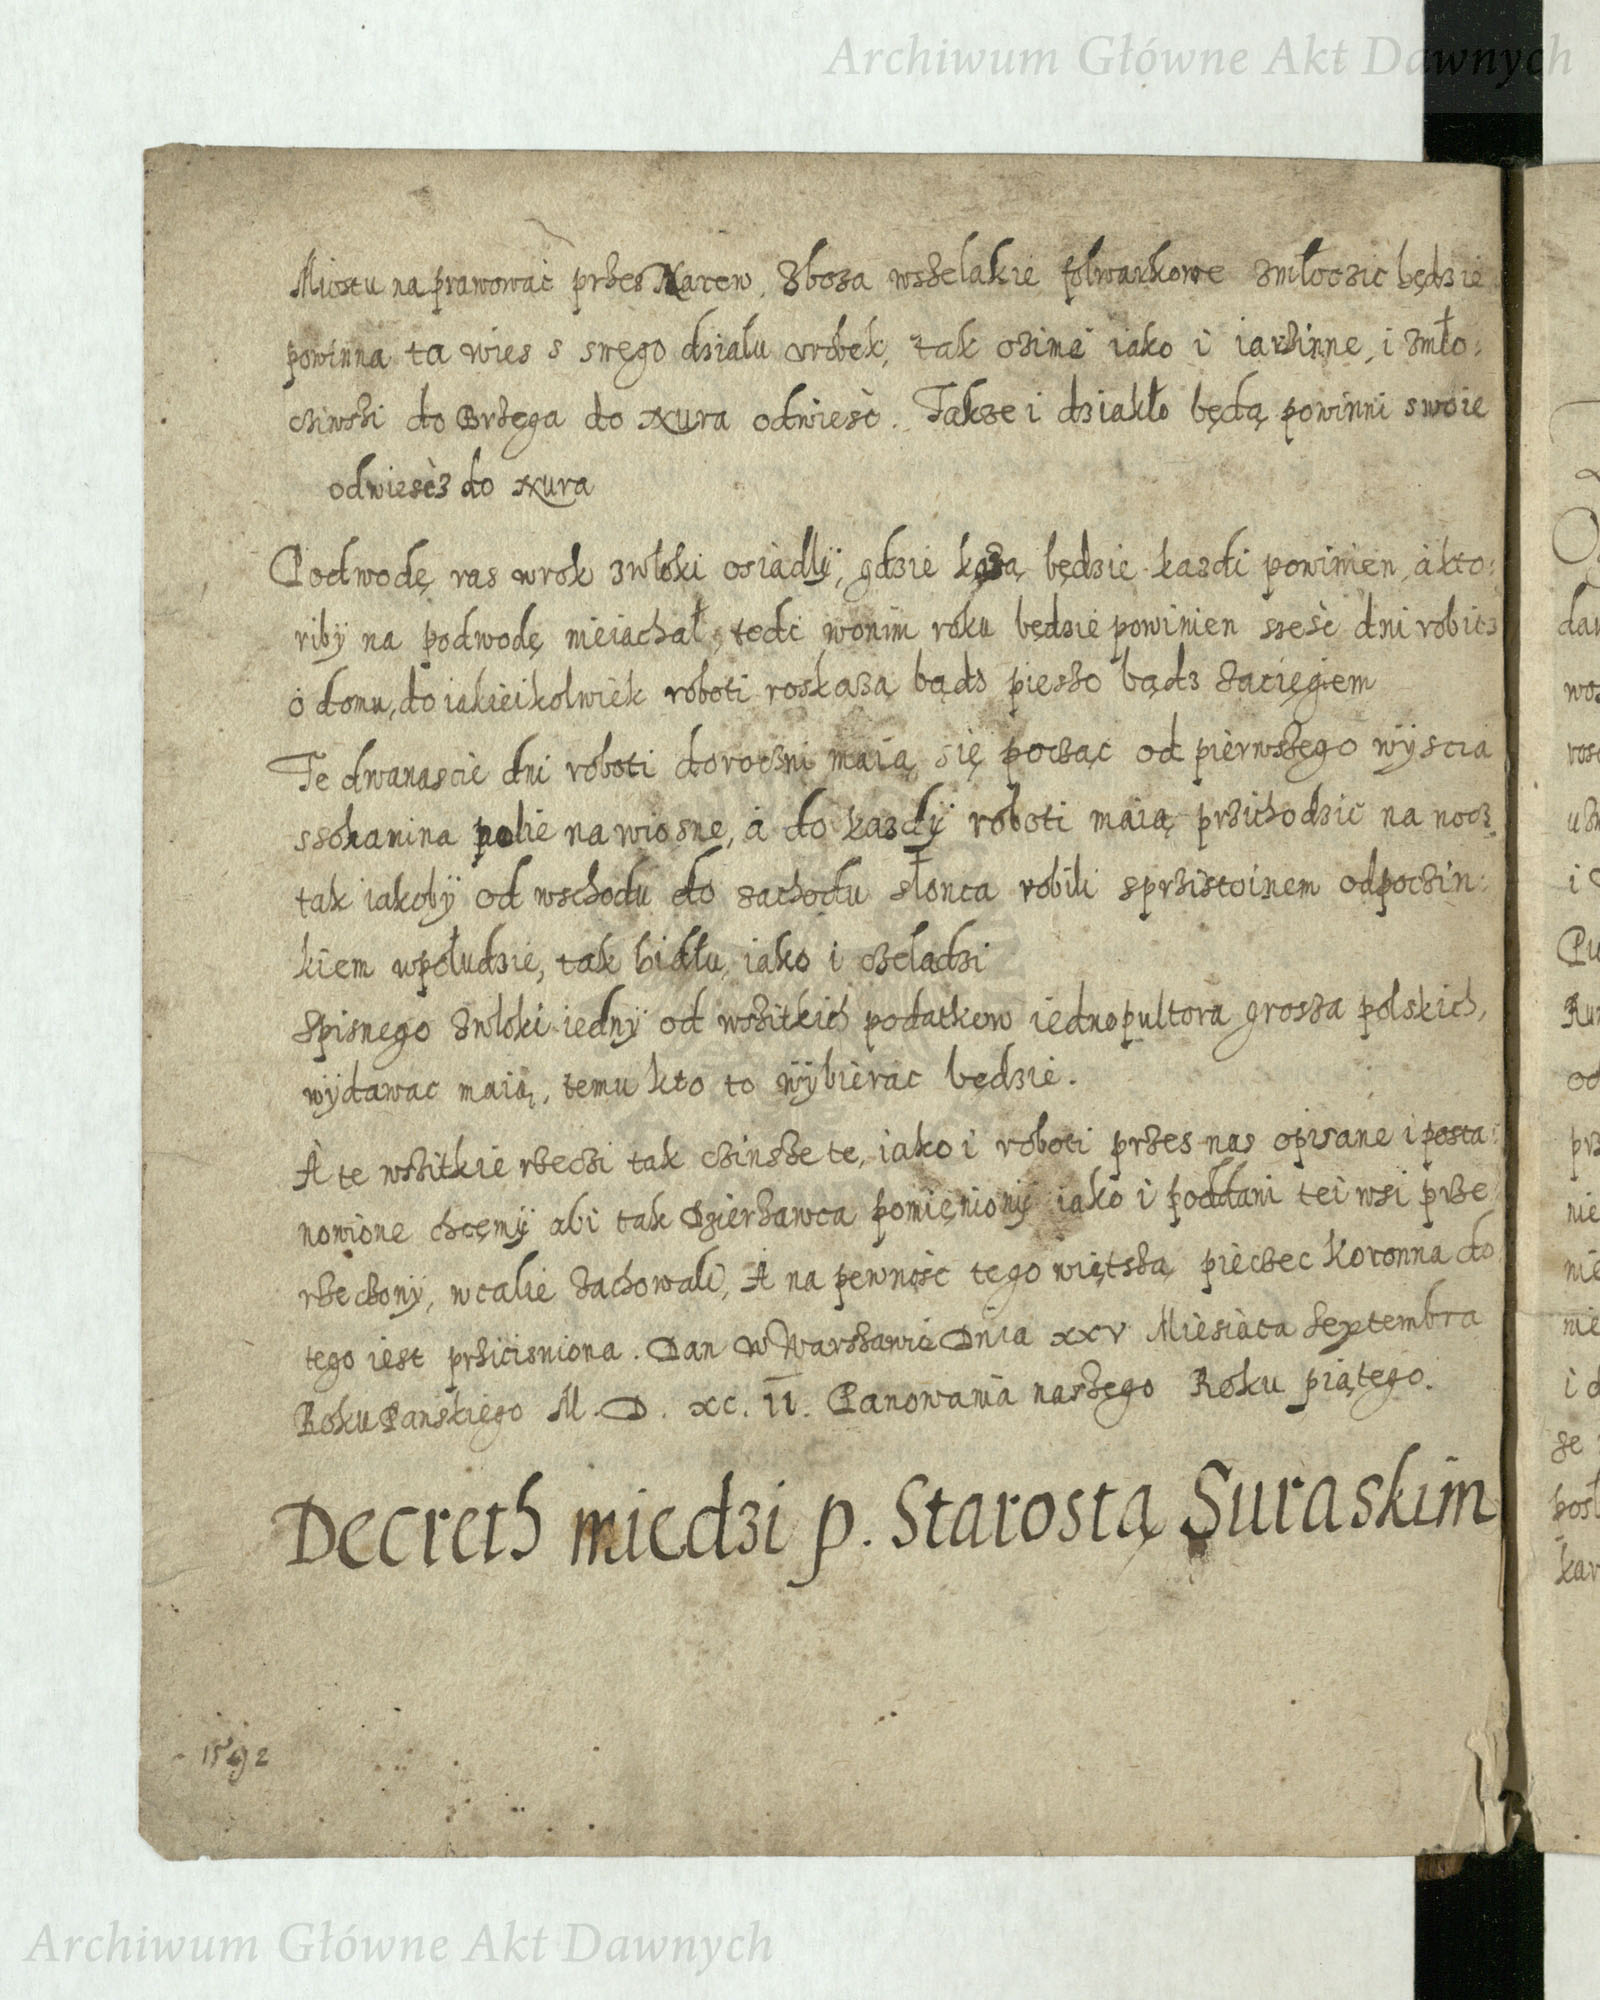 Archiwum Główne Akt Dawnych
Mostu na prawować przes Narew, Zboza wszelakie folwarkowe zmłoczic będzie
powinna ta wies s swego działu urobek, tak ozime iako i iarzinne, i zmło:
cziwszi do Brzega do Xura odwiesć. Takze i dziakło będą powinni swoie
odwiescz do Xura
Podwodę ras wrok zwłoki osiadłÿ, gdzie kaza będzie kazdi powinien, a kto:
ribÿ na podwodę nieiachał, tedi wonim roku będzie powinien szesć dni robicz
o domu, do iakieikolwiek roboti roskaza bądz pieszo bądz zaciegiem
Te dwanascie dni roboti doroczni maią się począc od pierwszego wÿscia
ssokanina polie na wiosne, a do kazdÿ roboti maią przichodzic na nocz
tak iakobÿ od wschodu do zachodu słonca robili sprzistoinem odpoczin:
kiem wpołudzie, tak bidłu, iako i czeladzi
Spisnego zwłoki iednÿ od wszitkich podatkow iednopultora grosza polskich,
wÿdawac maią, temu kto to wÿbierac będzie.
A te wszitkie rzeczi tak czinsze te, iako i roboti przes nas opisane i posta:
nowione chcemÿ abi tak Dzierzawca pomięnionÿ iako i poddani tei wsi prze
rzeczonÿ, wcalie zachowali, A na pewnosc tego więtszą pieczec Koronna do
tego iest prziscisniona. Dan w Warszawie Dnia xxv Miesiaca Septembra
Roku Panskiego M. D. xc. II. Panowania naszego Roku piątego.
Decreth miedzi p. Starostą Suraskim
1592
Archiwum Główne Akt Dawnych